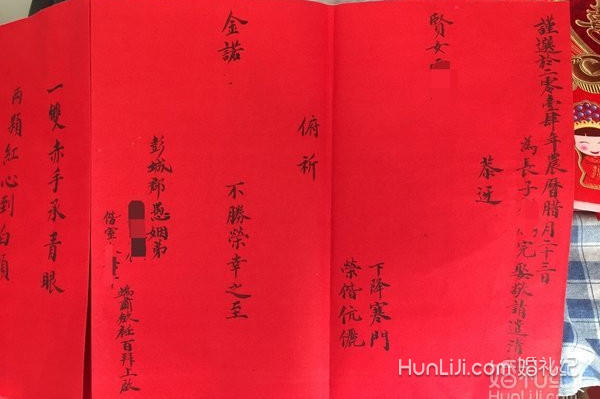 謹選於二零壹肆年農曆腊月二十三日
為長子完娶敬請
恭迓
賢女
下降寒門
榮偕伉儷
俯祈
金諾
不勝榮幸之至
彭城郡愚姻弟
偕室
端肅敛衽百拜上啟
一雙赤手承青眼
兩顆紅心到白頭
HunLiJi.com 婚礼纪
婚礼纪
HunLiJi.com